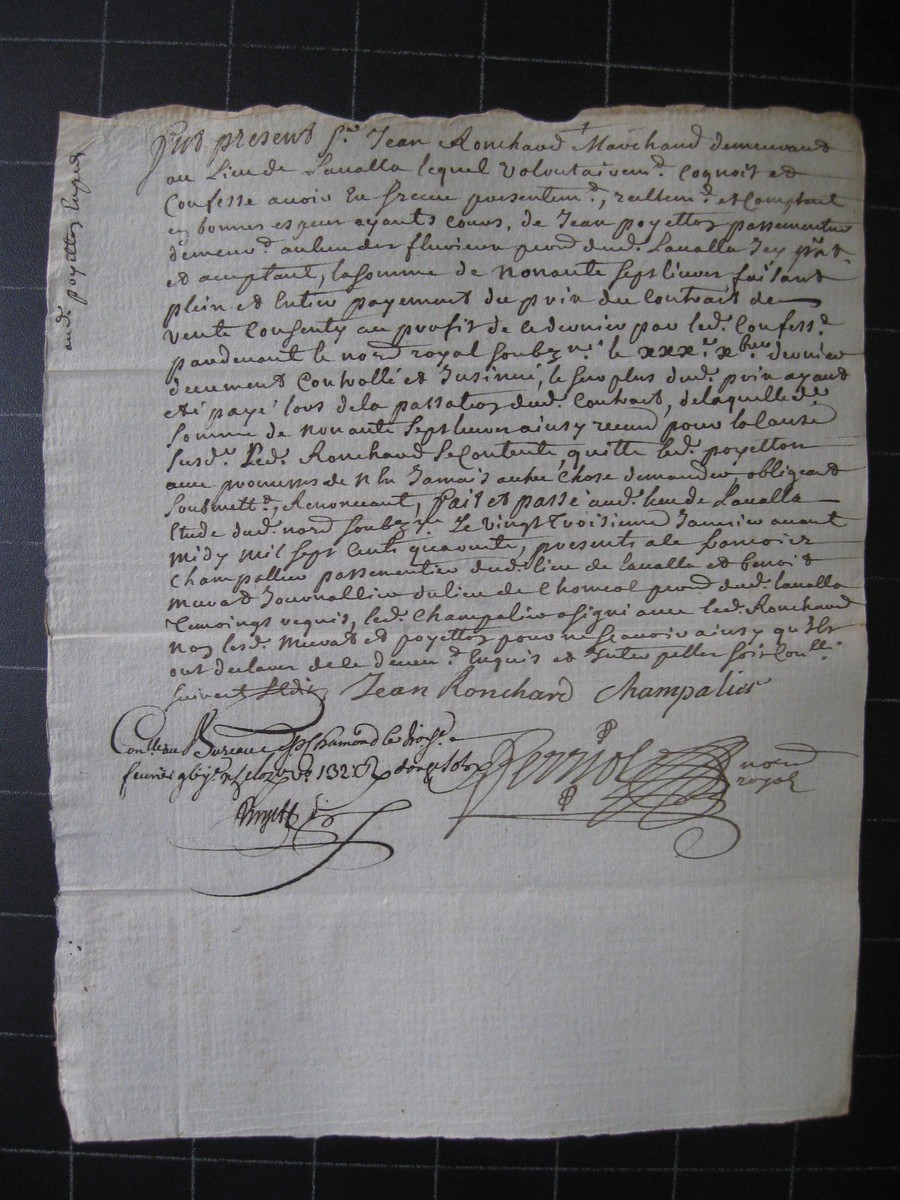 fut present Sr. Jean Ronchard Marchand demeurant
au Lieu de Lavalla lequel volontairemt. Cognoit et
Confesse avoir Eu et receu presentemt., reellemt. et Comptant
en bonnes especes ayants cours, de Jean poyetton passementier
demeurt. au lieu des fluvieux parr. dud. Lavalla Icy prnt.
et acceptant, la somme de nonante sept livres faisant
plein et Entier payement du prix du Contrait de
vente Consenty au profit de ce dernier par led. Confesst.
pardevant le nore. royal soubzne. le xxxe. xbre. dernier
deuement Controllé et Insinué, le surplus dud. prix ayant
eté payé lors de la passation dud. Contrait, de laquelle de.
somme de nonante sept livres ainsy receue pour la cause
susde. Led. Ronchard se Contente, quitte led. poyetton
avec promesses de n'En Jamais autre Chose demander, obligeant
Soubmettt., Renonceant, fait et passé aud. lieu de Lavalla
Etude dud. nore. soubzne. Le vingt Troisieme Janvier avant
midy mil sept Cents quarente, presents a ce francois
Champallier passementier dud. lieu de lavalla et benoit
Journallier du lieu de parr. dud. lavalla
Temoings requis, led. Champalier a signé avec led. Ronchard
non lesd. et poyetton pour ne scavoir ainsy qu'ils
ont declaré de ce deuemt. Enquis et Interpellés soit Conllé.
Suivant Ledit Jean Ronchard Champalier
Conllé au Bureau de St Chamond le
fevrier
Perriol nore royal
aud. poyetton Expedié